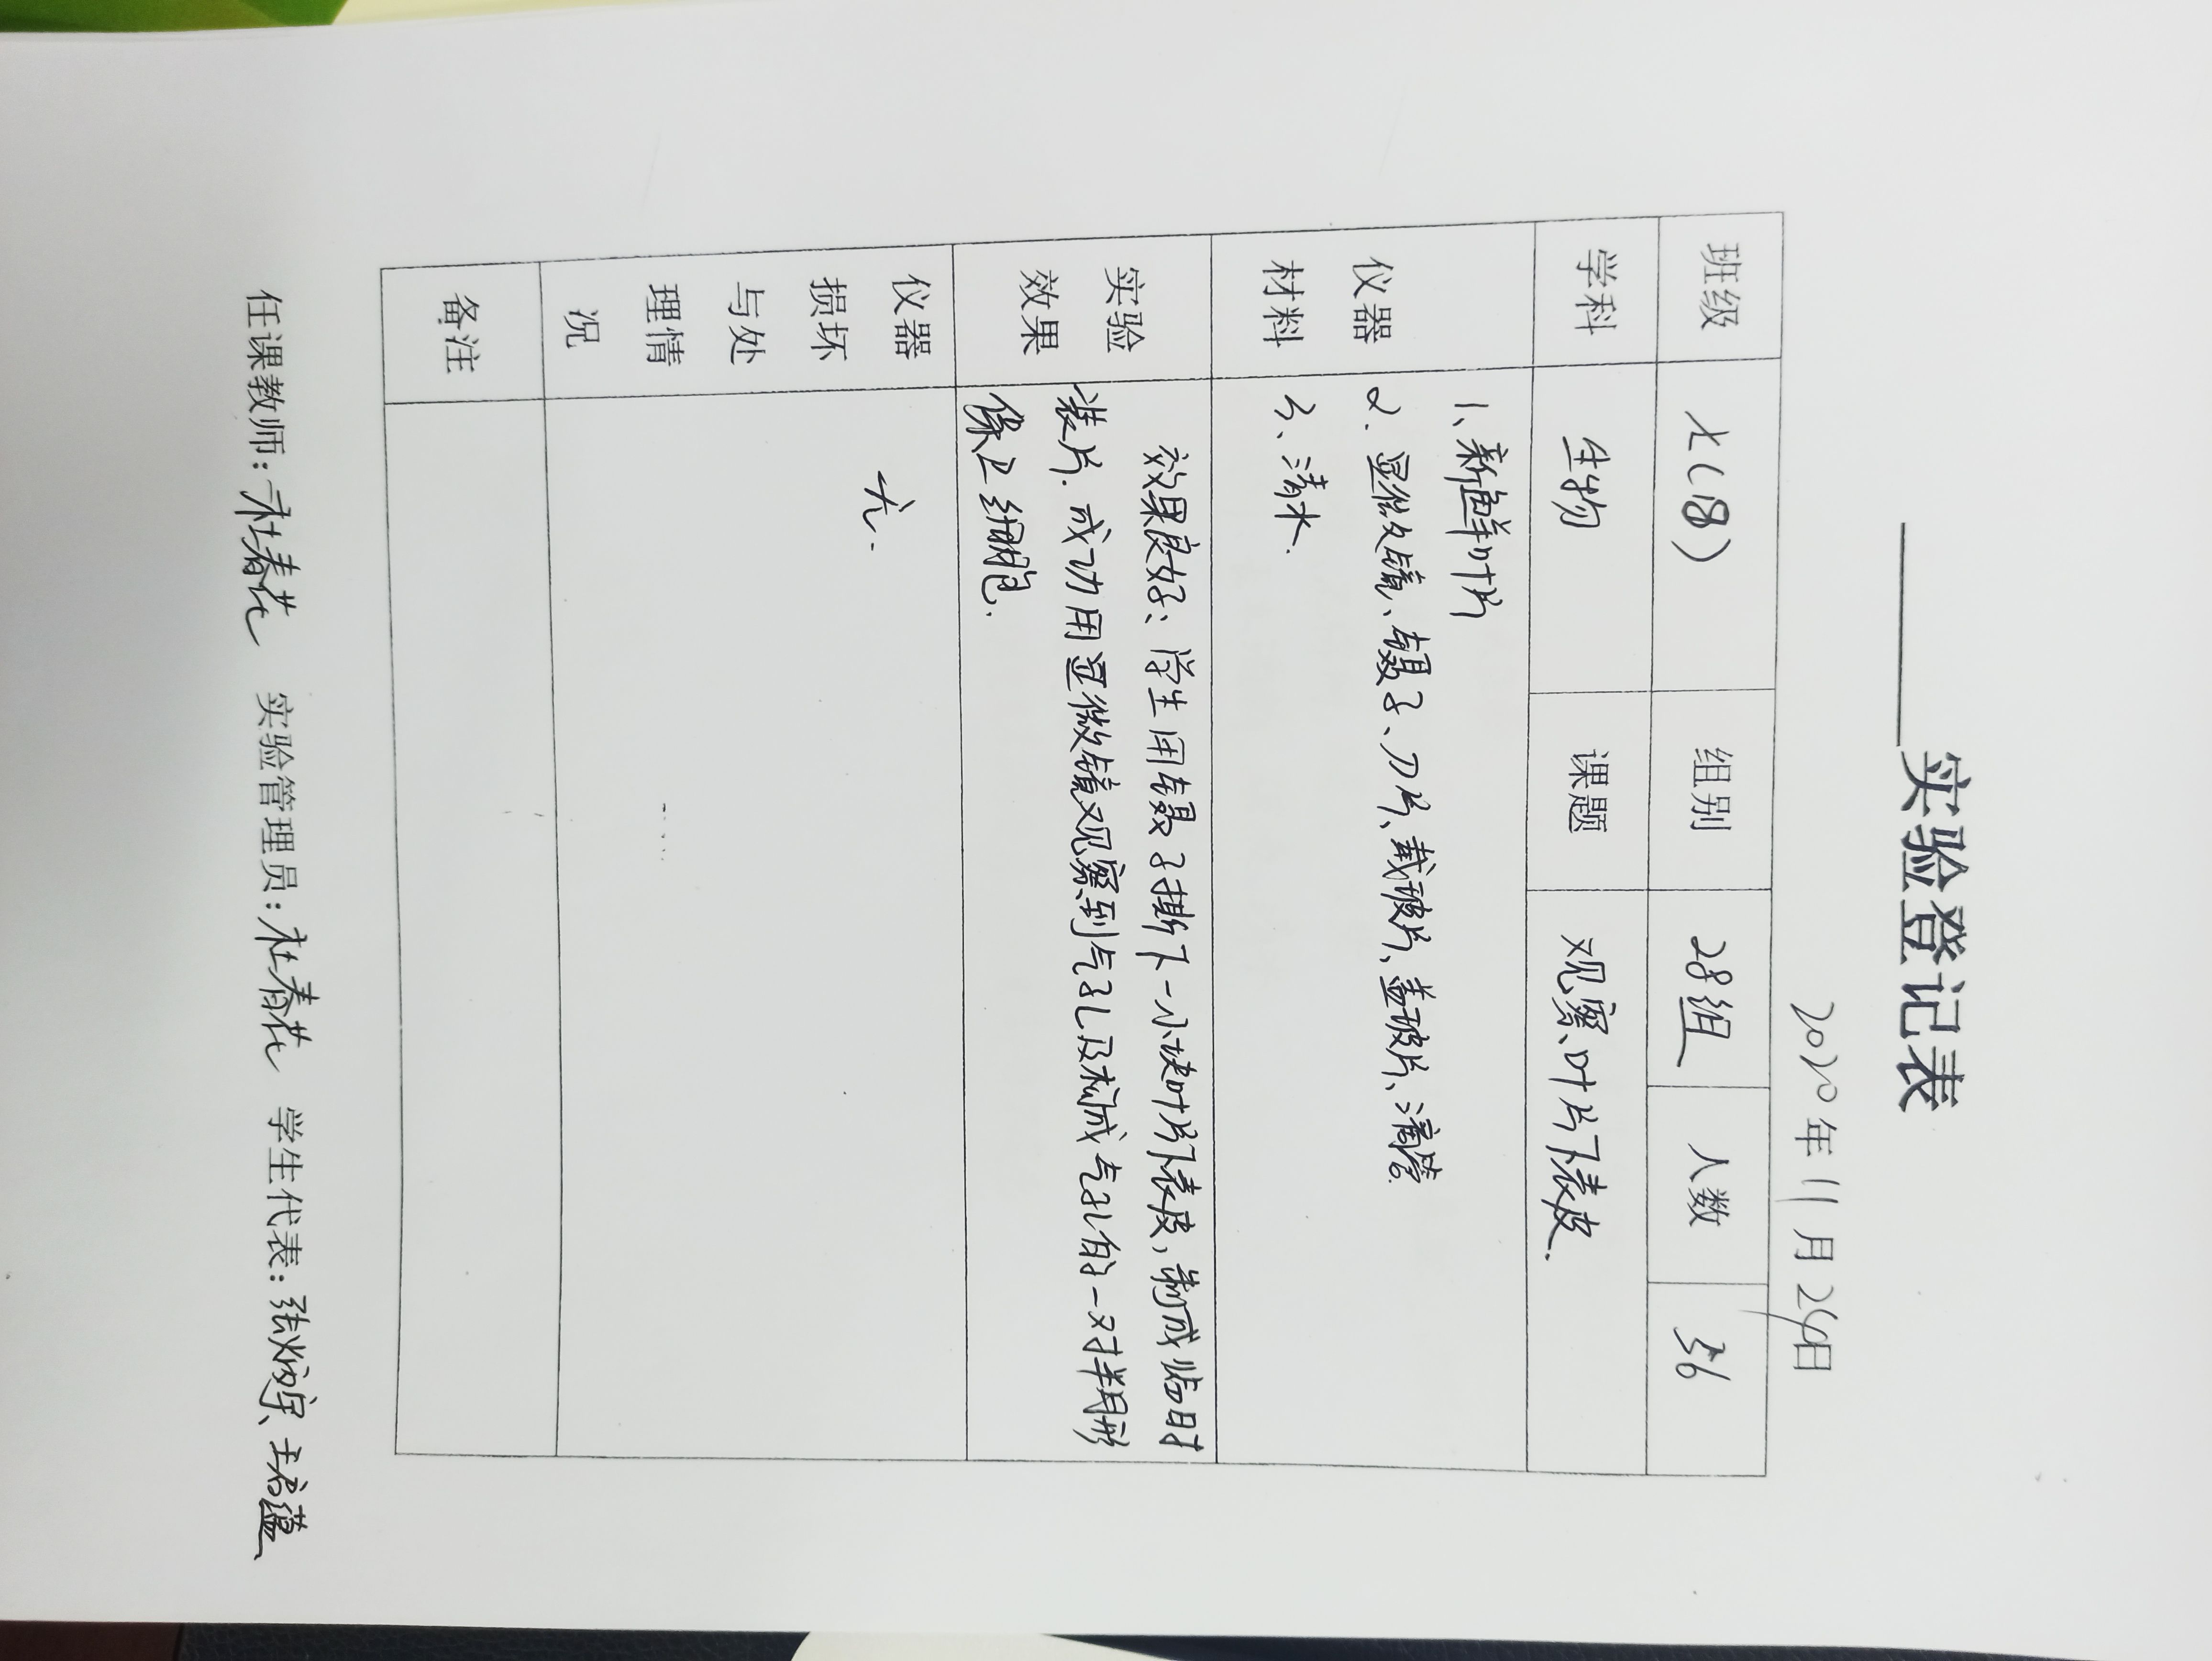 实验登记表
2020年11月24日
班级 七(18) 组别 28组 人数 56
学科 生物 课题 观察叶片下表皮.
仪器材料
1、新鲜叶片
2. 显微镜、镊子、刀片、载玻片、盖玻片、滴管.
3、清水.
实验效果
效果良好：学生用镊子撕下一小块叶片下表皮，制成临时
装片. 成功用显微镜观察到气孔及构成气孔的一对半月形
保卫细胞.
仪器损坏与处理情况
无.
备注
任课教师：杜春花 实验管理员：杜春花 学生代表：张炳宇、王启蕴